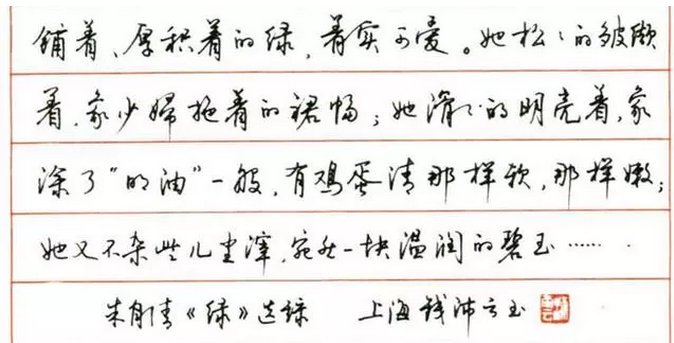 铺着、厚积着的绿,着实可爱。她松〻的皱缬
着,象少婦拖着的裙幅;她滑〻的明亮着,象
涂了"明油"一般,有鸡蛋清那样软,那样嫩;
她又不杂些儿尘滓,宛然一块温润的碧玉……
朱自清《绿》选录 上海钱沛云书